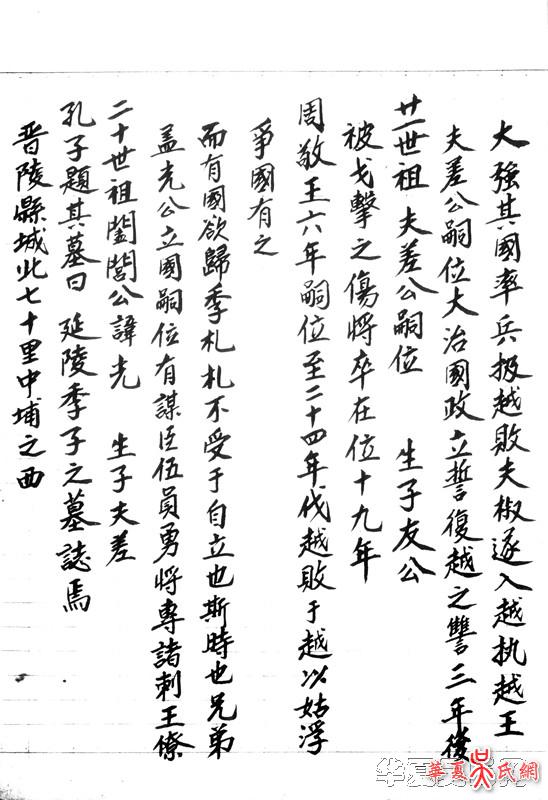 晋陵縣城北七十里中埔之西
孔子題其墓曰 延陵季子之墓誌焉
二十世祖闔閭公諱光 生子夫差
盖光公立國嗣位有謀臣伍員勇將專諸刺王僚
而有國欲歸季札札不受于自立也斯時也兄弟
爭國有之
周敬王六年嗣位至二十四年伐越敗于越以姑浮
被戈擊之傷將卒在位十九年
廿一世祖夫差公嗣位 生子友公
夫差公嗣位大治國政立誓復越之讐三年後
大強其國率兵扱越敗夫椒遂入越执越王
華夏吳氏網